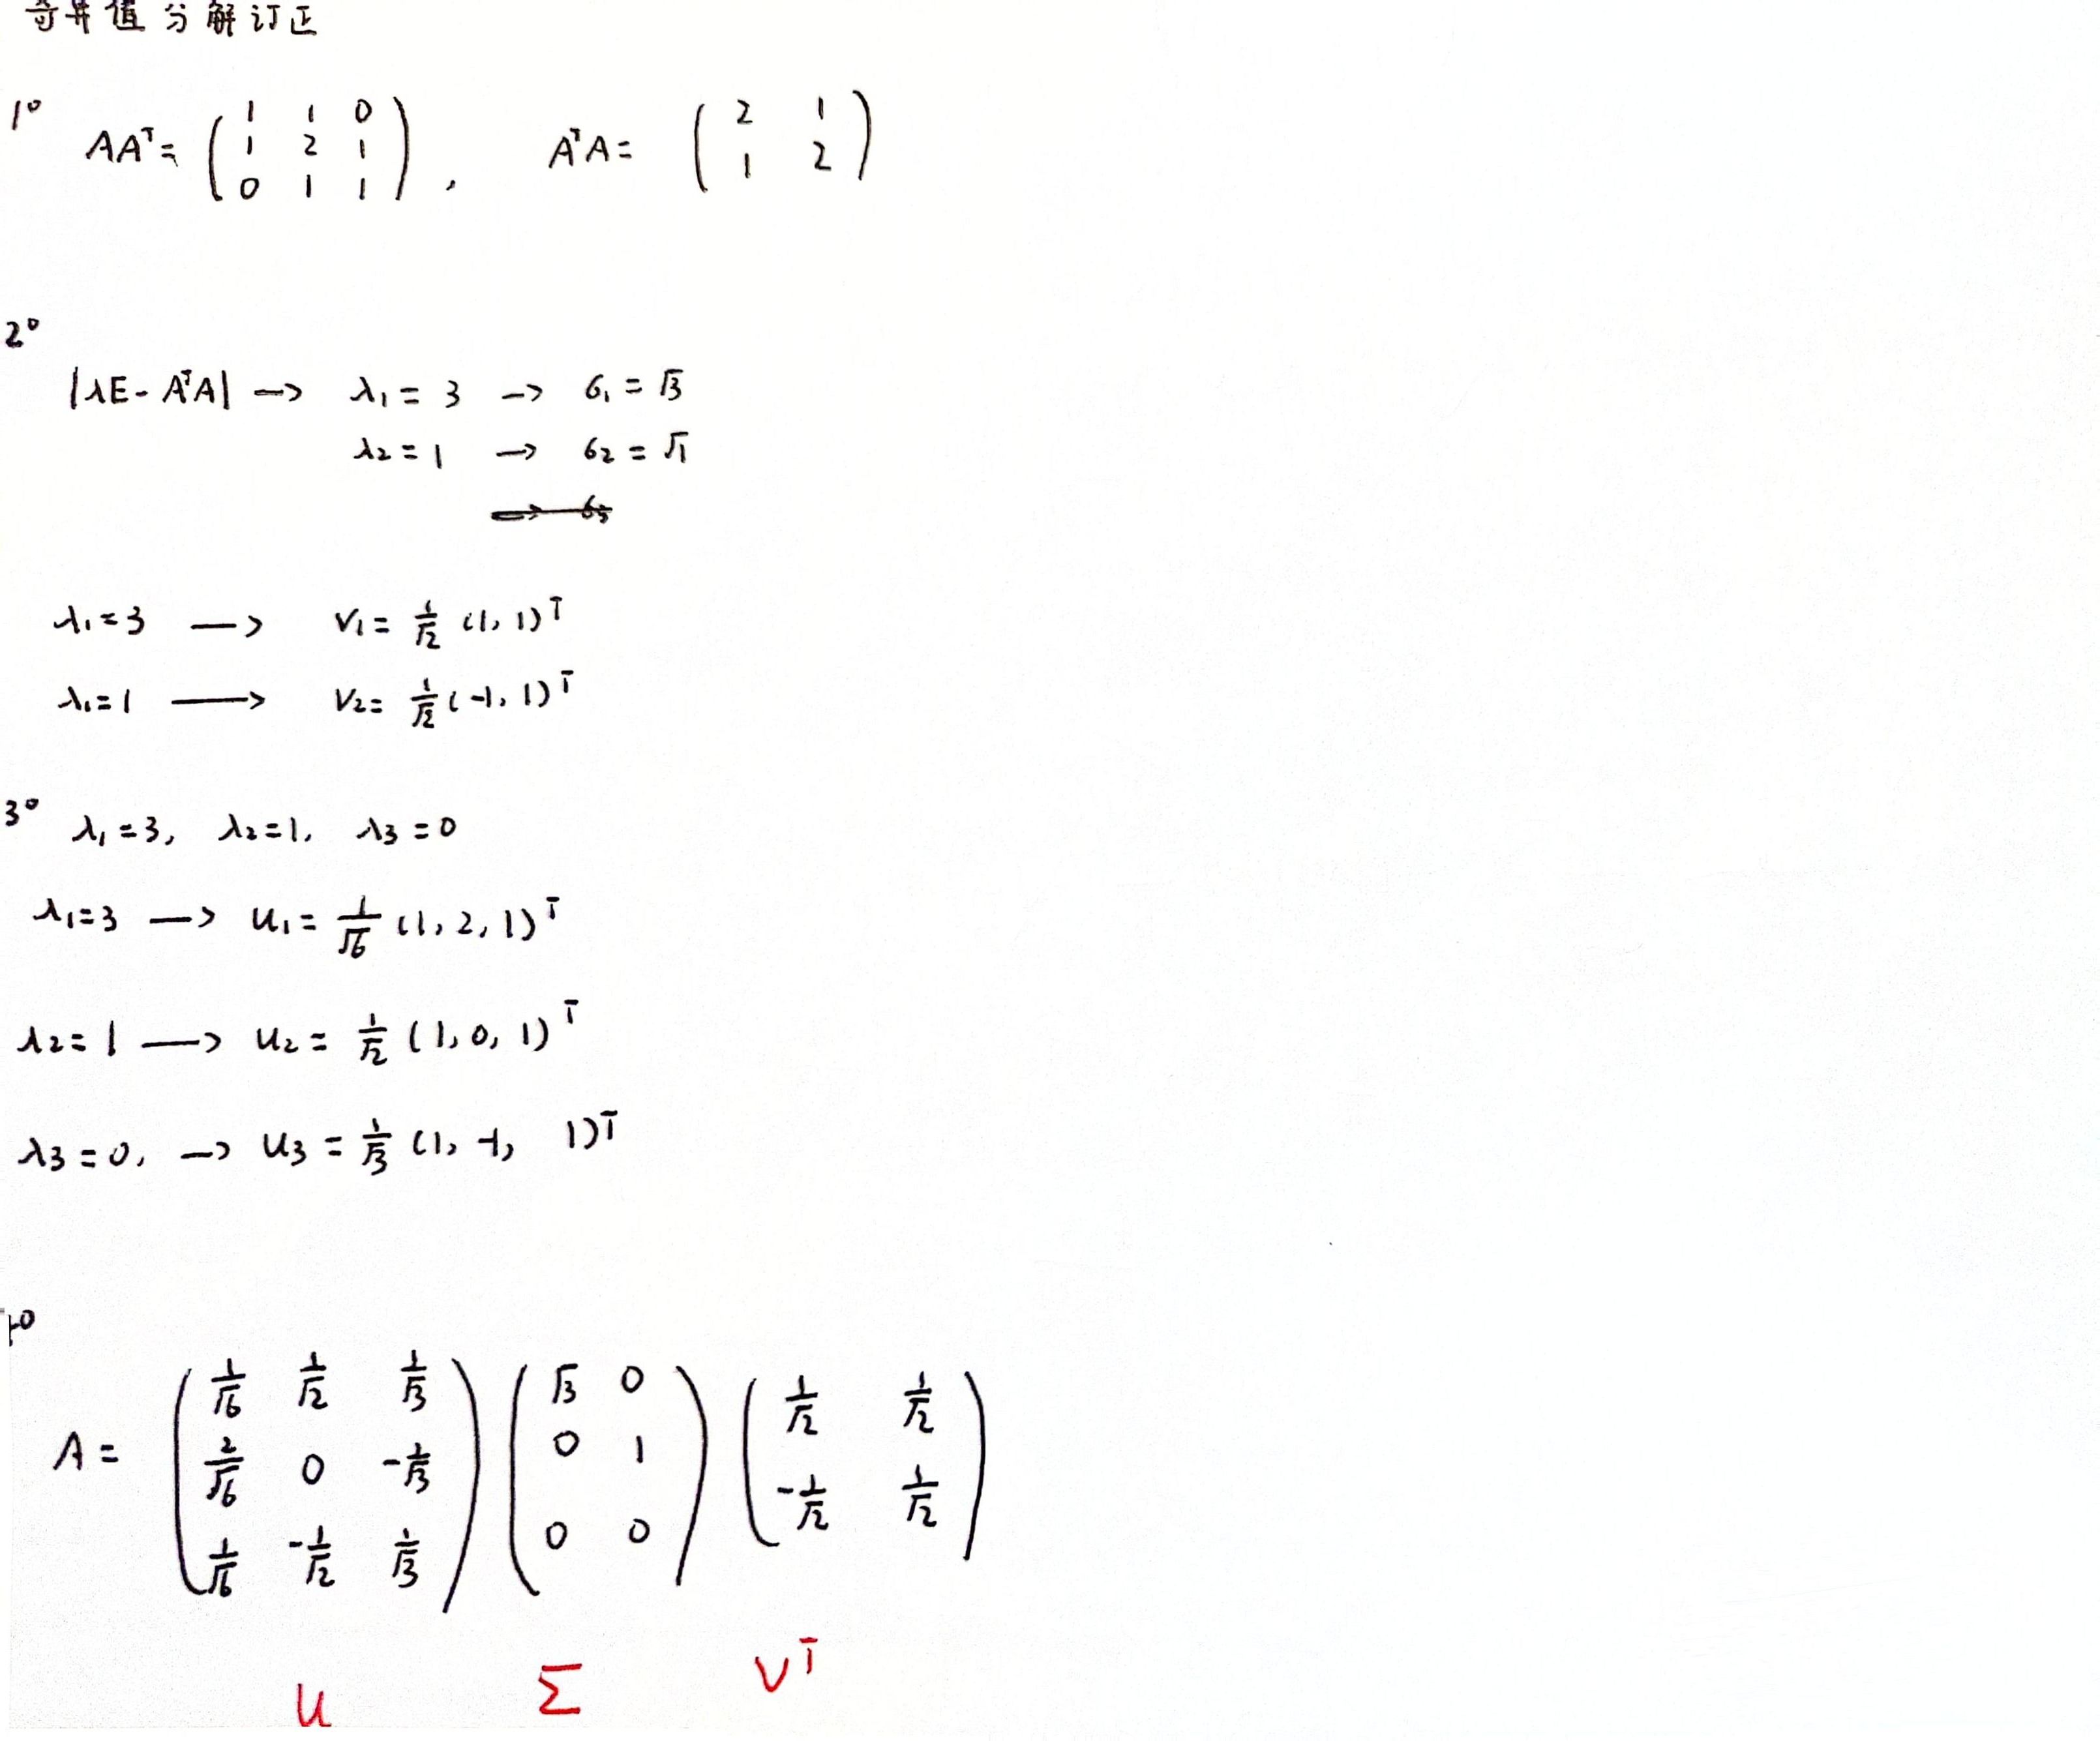 奇异值分解订正
1° AAᵀ = (1 1 0; 1 2 1; 0 1 1), AᵀA = (2 1; 1 2)
2°
|λE - AᵀA| → λ₁ = 3 → σ₁ = √3
λ₂ = 1 → σ₂ = √1
λ₁ = 3 → v₁ = 1/√2 (1, 1)ᵀ
λ₁ = 1 → v₂ = 1/√2 (-1, 1)ᵀ
3° λ₁ = 3, λ₂ = 1, λ₃ = 0
λ₁ = 3 → u₁ = 1/√6 (1, 2, 1)ᵀ
λ₂ = 1 → u₂ = 1/√2 (1, 0, 1)ᵀ
λ₃ = 0, → u₃ = 1/√3 (1, -1, 1)ᵀ
A = (1/√6 1/√2 1/√3; 2/√6 0 -1/√3; 1/√6 -1/√2 1/√3) (√3 0; 0 1; 0 0) (1/√2 1/√2; -1/√2 1/√2)
U Σ Vᵀ